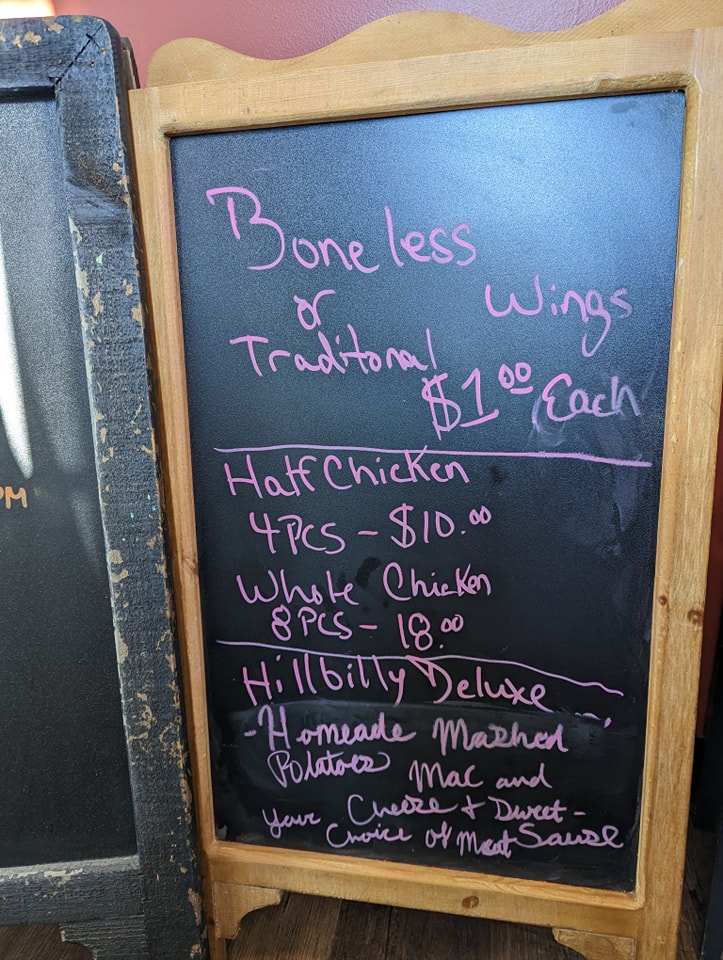 PM
Boneless
or Wings
Traditonal
$1.00 Each
Half Chicken
4 PCS - $10.00
Whole Chicken
8 PCS - 18.00
Hillbilly Deluxe
- Homeade Mashed
Potatoes Mac and
Cheese + Sweet - Sause
Your Choice of Meat